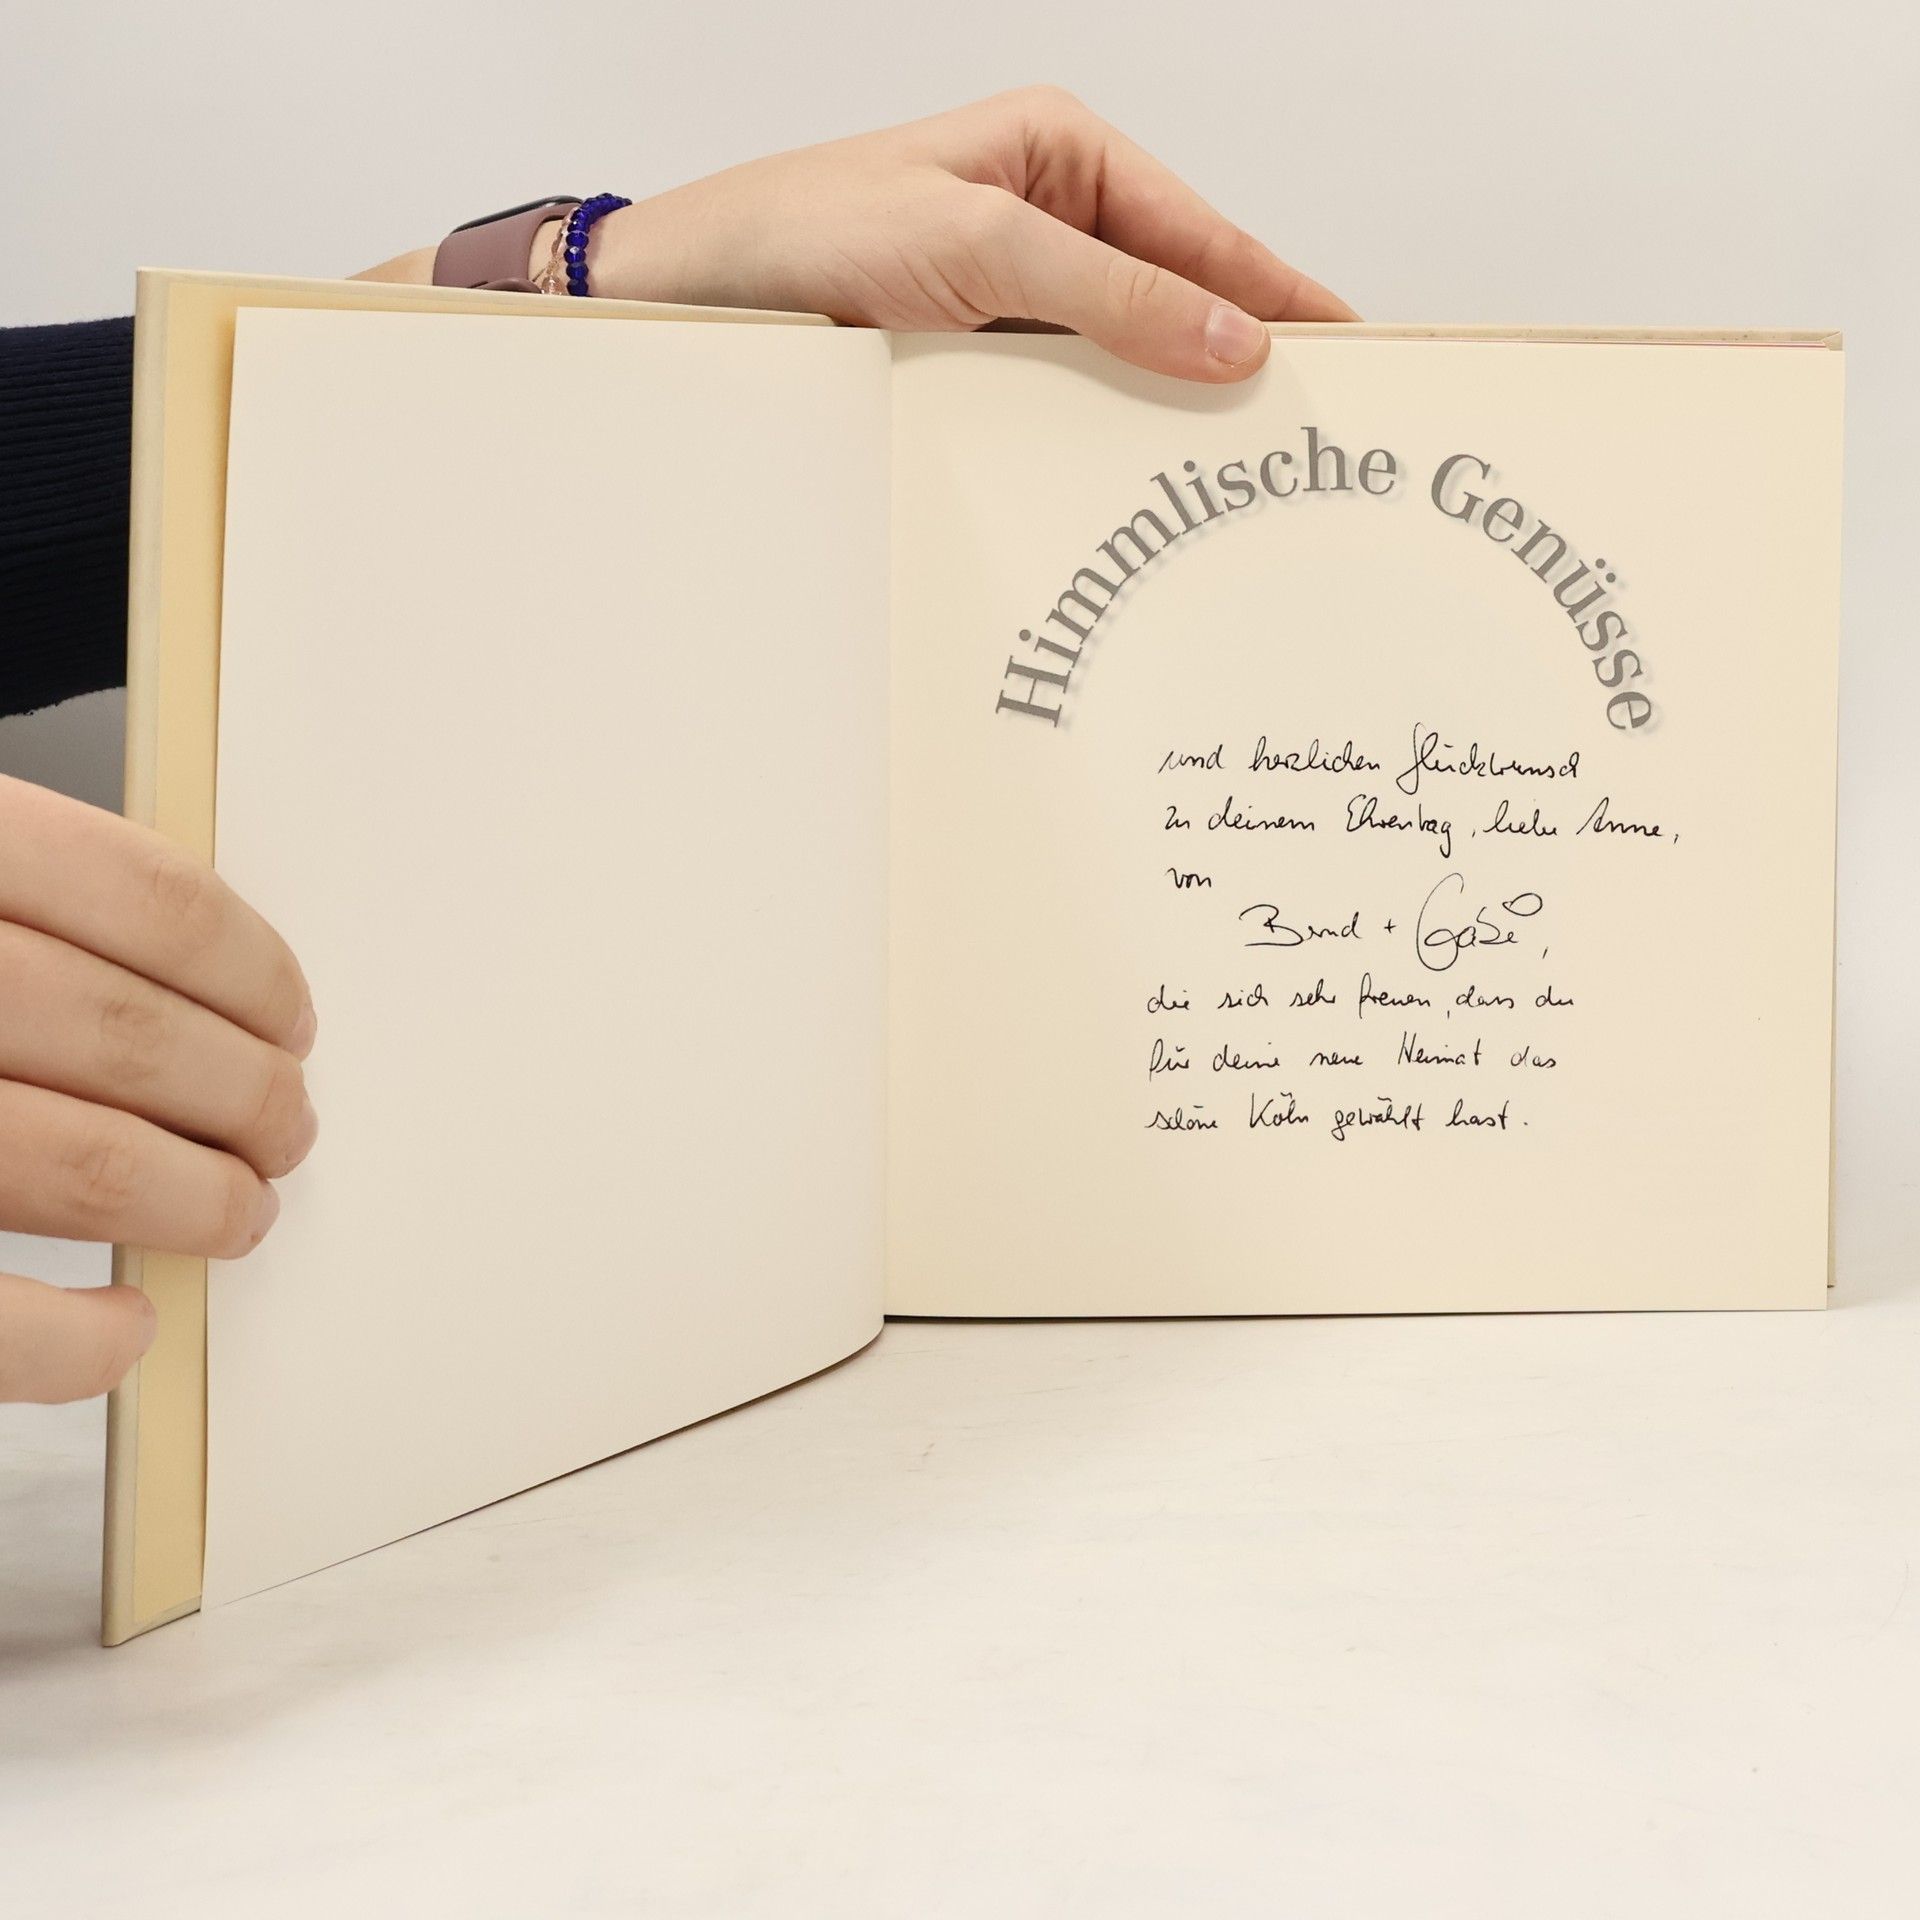 Himmlische Genüsse
und herzlichen Glückwunsch
zu deinem Ehrentag, liebe Anne,
von
Bernd + Gabi,
die sich sehr freuen, dass du
für deine neue Heimat das
schöne Köln gewählt hast.